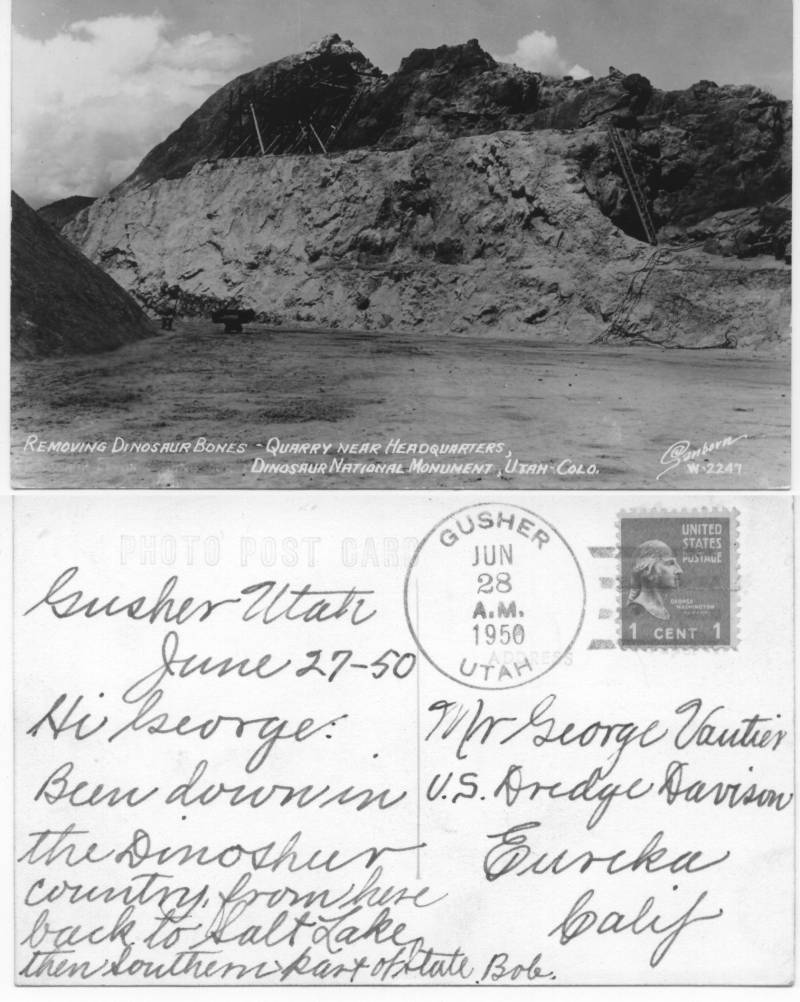 REMOVING DINOSAUR BONES - QUARRY NEAR HEADQUARTERS,
DINOSAUR NATIONAL MONUMENT, UTAH-COLO.
Sanborn
W-2247
PHOTO POST CARD
GUSHER
JUN
28
A.M.
1950
UTAH
UNITED
STATES
POSTAGE
GEORGE
WASHINGTON
1 CENT 1
ADDRESS
Gusher Utah
June 27-50
Hi George:
Been down in
the Dinosheur
country, from here
back to Salt Lake,
then Southern part of state. Bob.
Mr George Vautier
U.S. Dredge Davison
Eureka
Calif